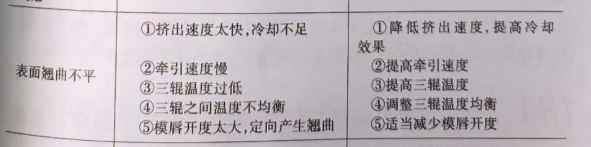 表面翘曲不平
①挤出速度太快,冷却不足
②牵引速度慢
③三辊温度过低
④三辊之间温度不均衡
⑤模唇开度太大,定向产生翘曲
①降低挤出速度,提高冷却
效果
②提高牵引速度
③提高三辊温度
④调整三辊温度均衡
⑤适当减少模唇开度